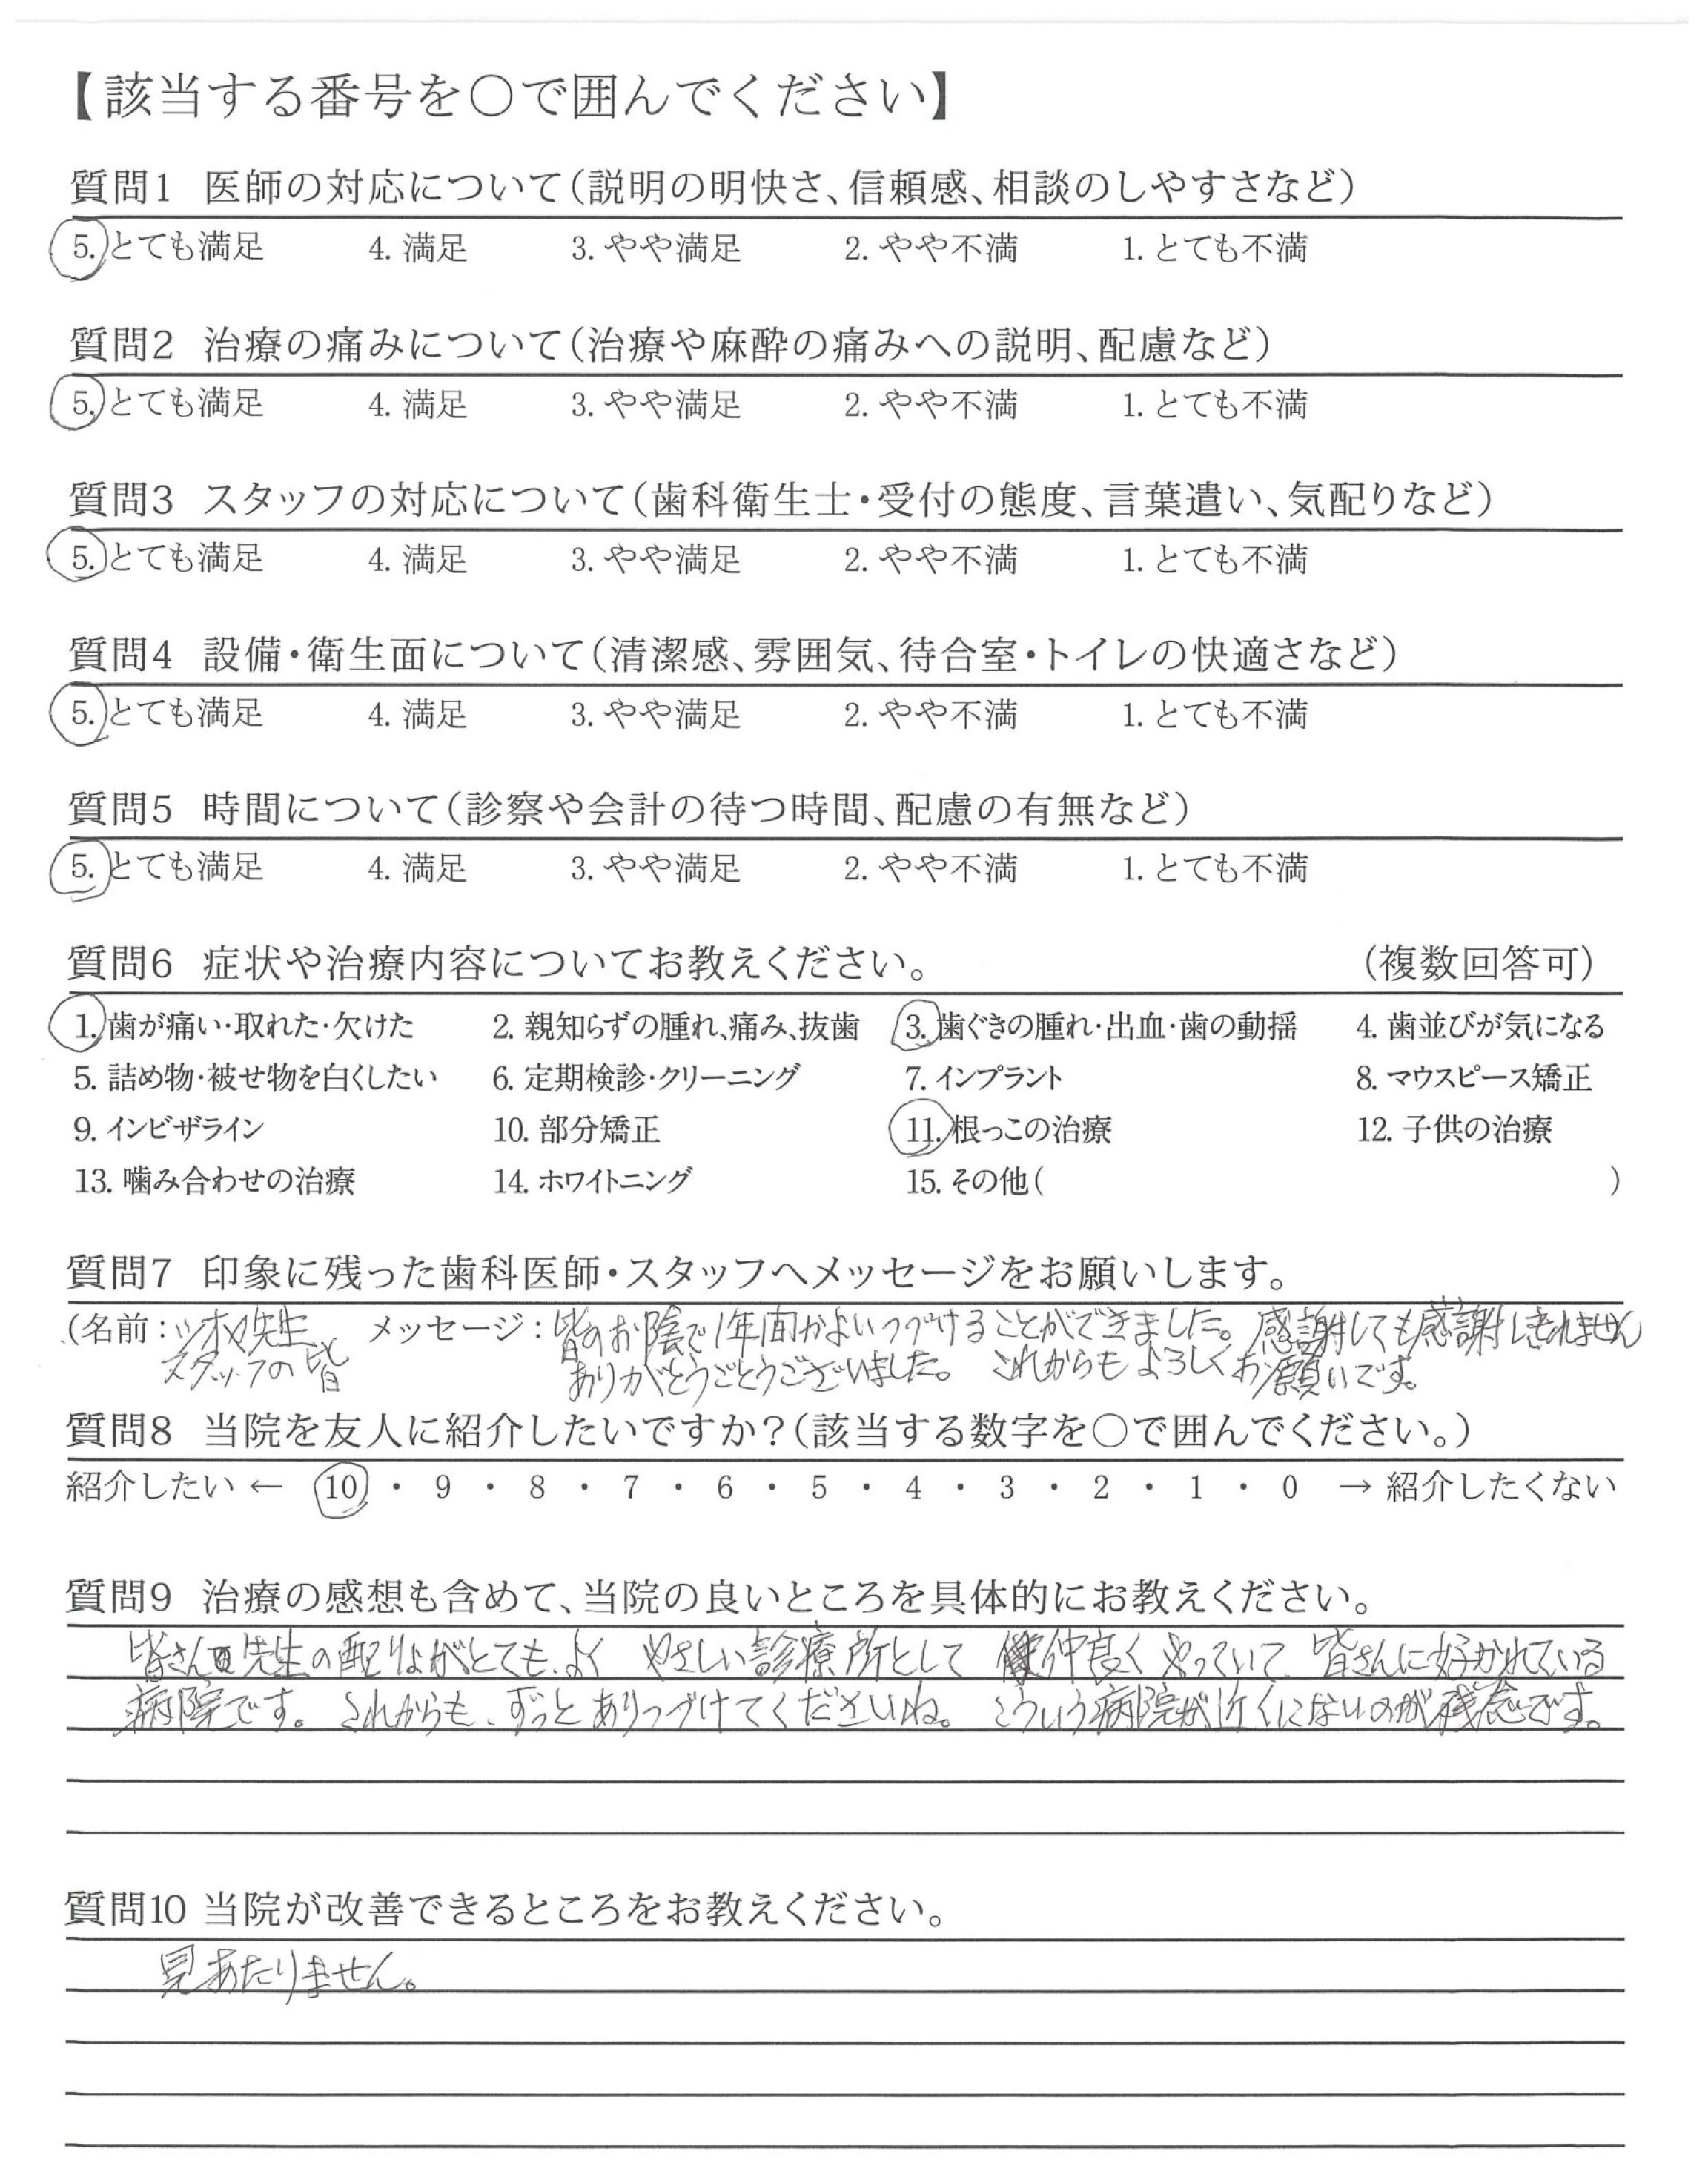 【該当する番号を○で囲んでください】
質問1 医師の対応について(説明の明快さ、信頼感、相談のしやすさなど)
5. とても満足 4. 満足 3. やや満足 2. やや不満 1. とても不満
質問2 治療の痛みについて(治療や麻酔の痛みへの説明、配慮など)
5. とても満足 4. 満足 3. やや満足 2. やや不満 1. とても不満
質問3 スタッフの対応について(歯科衛生士・受付の態度、言葉遣い、気配りなど)
5. とても満足 4. 満足 3. やや満足 2. やや不満 1. とても不満
質問4 設備・衛生面について(清潔感、雰囲気、待合室・トイレの快適さなど)
5. とても満足 4. 満足 3. やや満足 2. やや不満 1. とても不満
質問5 時間について(診察や会計の待つ時間、配慮の有無など)
5. とても満足 4. 満足 3. やや満足 2. やや不満 1. とても不満
質問6 症状や治療内容についてお教えください。 (複数回答可)
1. 歯が痛い・取れた・欠けた 2. 親知らずの腫れ、痛み、抜歯 3. 歯ぐきの腫れ・出血・歯の動揺 4. 歯並びが気になる
5. 詰め物・被せ物を白くしたい 6. 定期検診・クリーニング 7. インプラント 8. マウスピース矯正
9. インビザライン 10. 部分矯正 11. 根っこの治療 12. 子供の治療
13. 噛み合わせの治療 14. ホワイトニング 15. その他( )
質問7 印象に残った歯科医師・スタッフへメッセージをお願いします。
(名前: 先生 メッセージ: 皆のお陰で1年間かよいつづけることができました。感謝しても感謝しきれません
スタッフの皆 ありがとうごとうございました。 これからもよろしくお願いです。
質問8 当院を友人に紹介したいですか?(該当する数字を○で囲んでください。)
紹介したい ← 10 ・ 9 ・ 8 ・ 7 ・ 6 ・ 5 ・ 4 ・ 3 ・ 2 ・ 1 ・ 0 → 紹介したくない
質問9 治療の感想も含めて、当院の良いところを具体的にお教えください。
皆さん 先生の配りょがとても、よく やさしい診療所として 仲良く やっていて 皆さんに好かれている
病院です。これからも、ずっとありつづけてくださいね。 こういう病院が近くにないのが残念です。
質問10 当院が改善できるところをお教えください。
見あたりません。